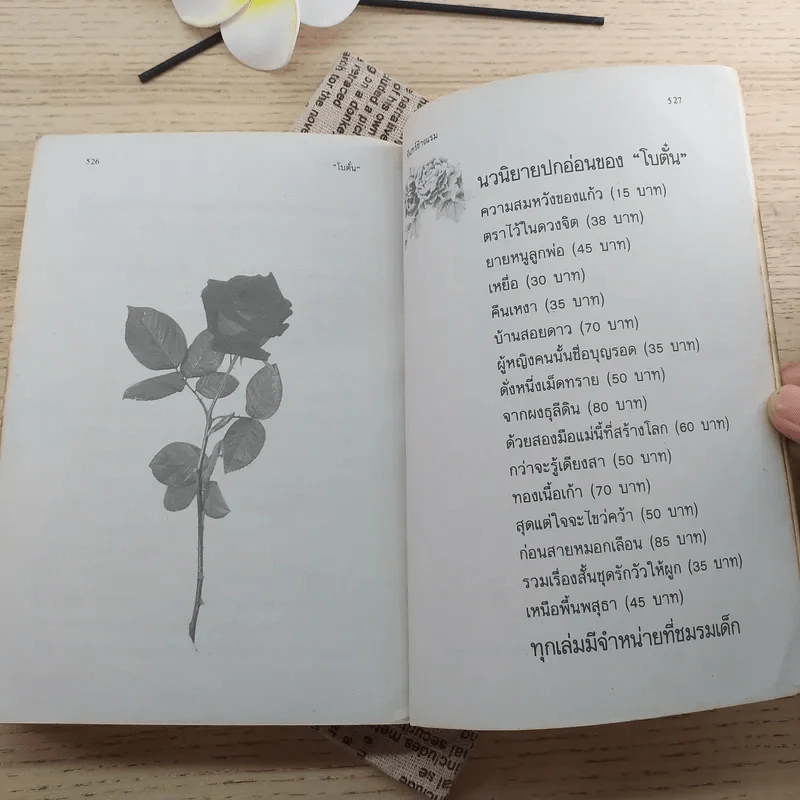 526
"โบตั๋น"
527
จันทร์ข้างแรม
นวนิยายปกอ่อนของ "โบตั๋น"
ความสมหวังของแก้ว (15 บาท)
ตราไว้ในดวงจิต (38 บาท)
ยายหนูลูกพ่อ (45 บาท)
เหยื่อ (30 บาท)
คืนเหงา (35 บาท)
บ้านสอยดาว (70 บาท)
ผู้หญิงคนนั้นชื่อบุญรอด (35 บาท)
ดั่งหนึ่งเม็ดทราย (50 บาท)
จากผงธุลีดิน (80 บาท)
ด้วยสองมือแม่นี้ที่สร้างโลก (60 บาท)
กว่าจะรู้เดียงสา (50 บาท)
ทองเนื้อเก้า (70 บาท)
สุดแต่ใจจะไขว่คว้า (50 บาท)
ก่อนสายหมอกเลือน (85 บาท)
รวมเรื่องสั้นชุดรักวัวให้ผูก (35 บาท)
เหนือพื้นพสุธา (45 บาท)
ทุกเล่มมีจำหน่ายที่ชมรมเด็ก